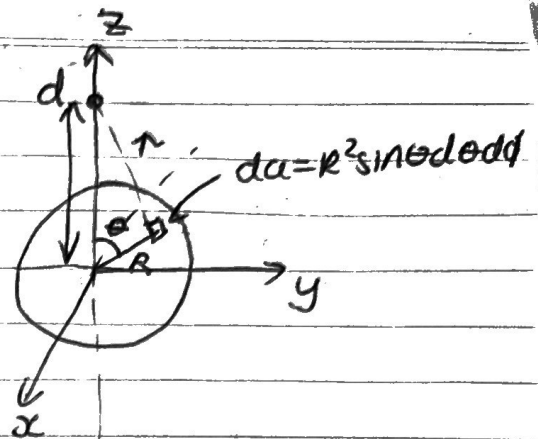 z
d
r
da=R²sinθdθdφ
θ
R
y
x